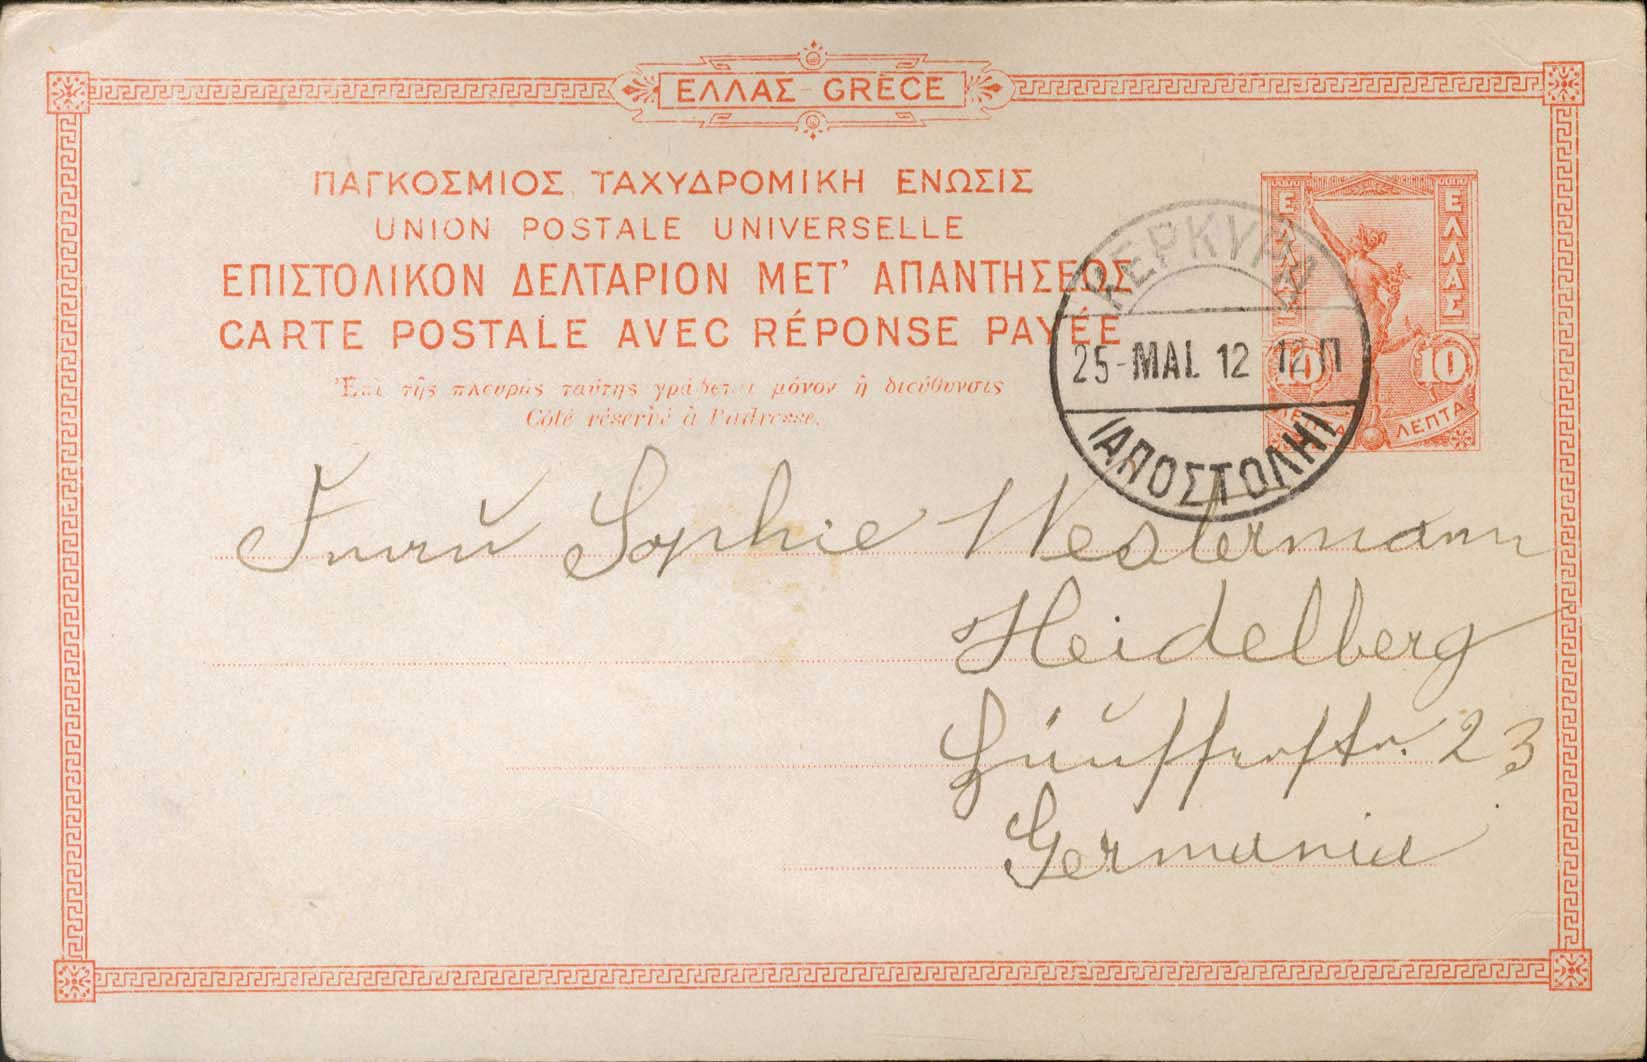 ΕΛΛΑΣ - GRÈCE
ΠΑΓΚΟΣΜΙΟΣ ΤΑΧΥΔΡΟΜΙΚΗ ΕΝΩΣΙΣ
UNION POSTALE UNIVERSELLE
ΕΠΙΣΤΟΛΙΚΟΝ ΔΕΛΤΑΡΙΟΝ ΜΕΤ' ΑΠΑΝΤΗΣΕΩΣ
CARTE POSTALE AVEC RÉPONSE PAYÉE
Ἐπὶ τῆς πλευρᾶς ταύτης γράφεται μόνον ἡ διεύθυνσις
Côté réservé à l'adresse.
ΕΛΛΑΣ
ΕΛΛΑΣ
10
10
ΛΕΠΤΑ
ΛΕΠΤΑ
ΚΕΡΚΥΡΑ
25-ΜΑΙ. 12 12 Π
(ΑΠΟΣΤΟΛΗ)
Frau Sophie Westermann
Heidelberg
23
Germania